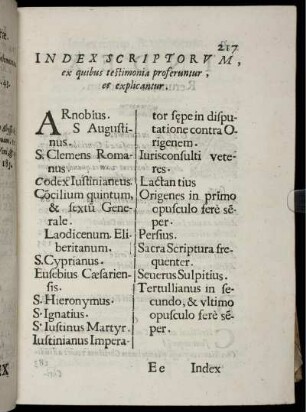 217
INDEX SCRIPTORVM,
ex quibus testimonia proferuntur,
et explicantur.
ARnobius.
S Augusti-
nus.
S. Clemens Roma-
nus
Codex Iustinianeus.
Cōcilium quintum,
& sextū Gene-
rale.
Laodicenum Eli-
beritanum.
S. Cyprianus.
Eusebius Cæsarien-
sis.
S. Hieronymus.
S. Ignatius.
Sᵗ Iustinus Martyr.
Iustinianus Impera-
tor sępe in dispu-
tatione contra O-
rigenem.
Iurisconsulti vete-
res.
Lactantius
Origenes in primo
opusculo ferè sē-
per.
Persius.
Sacra Scriptura fre-
quenter.
Seuerus Sulpitius.
Tertullianus in se-
cundo, & vltimo
opusculo ferè sē-
per.
Ee Index